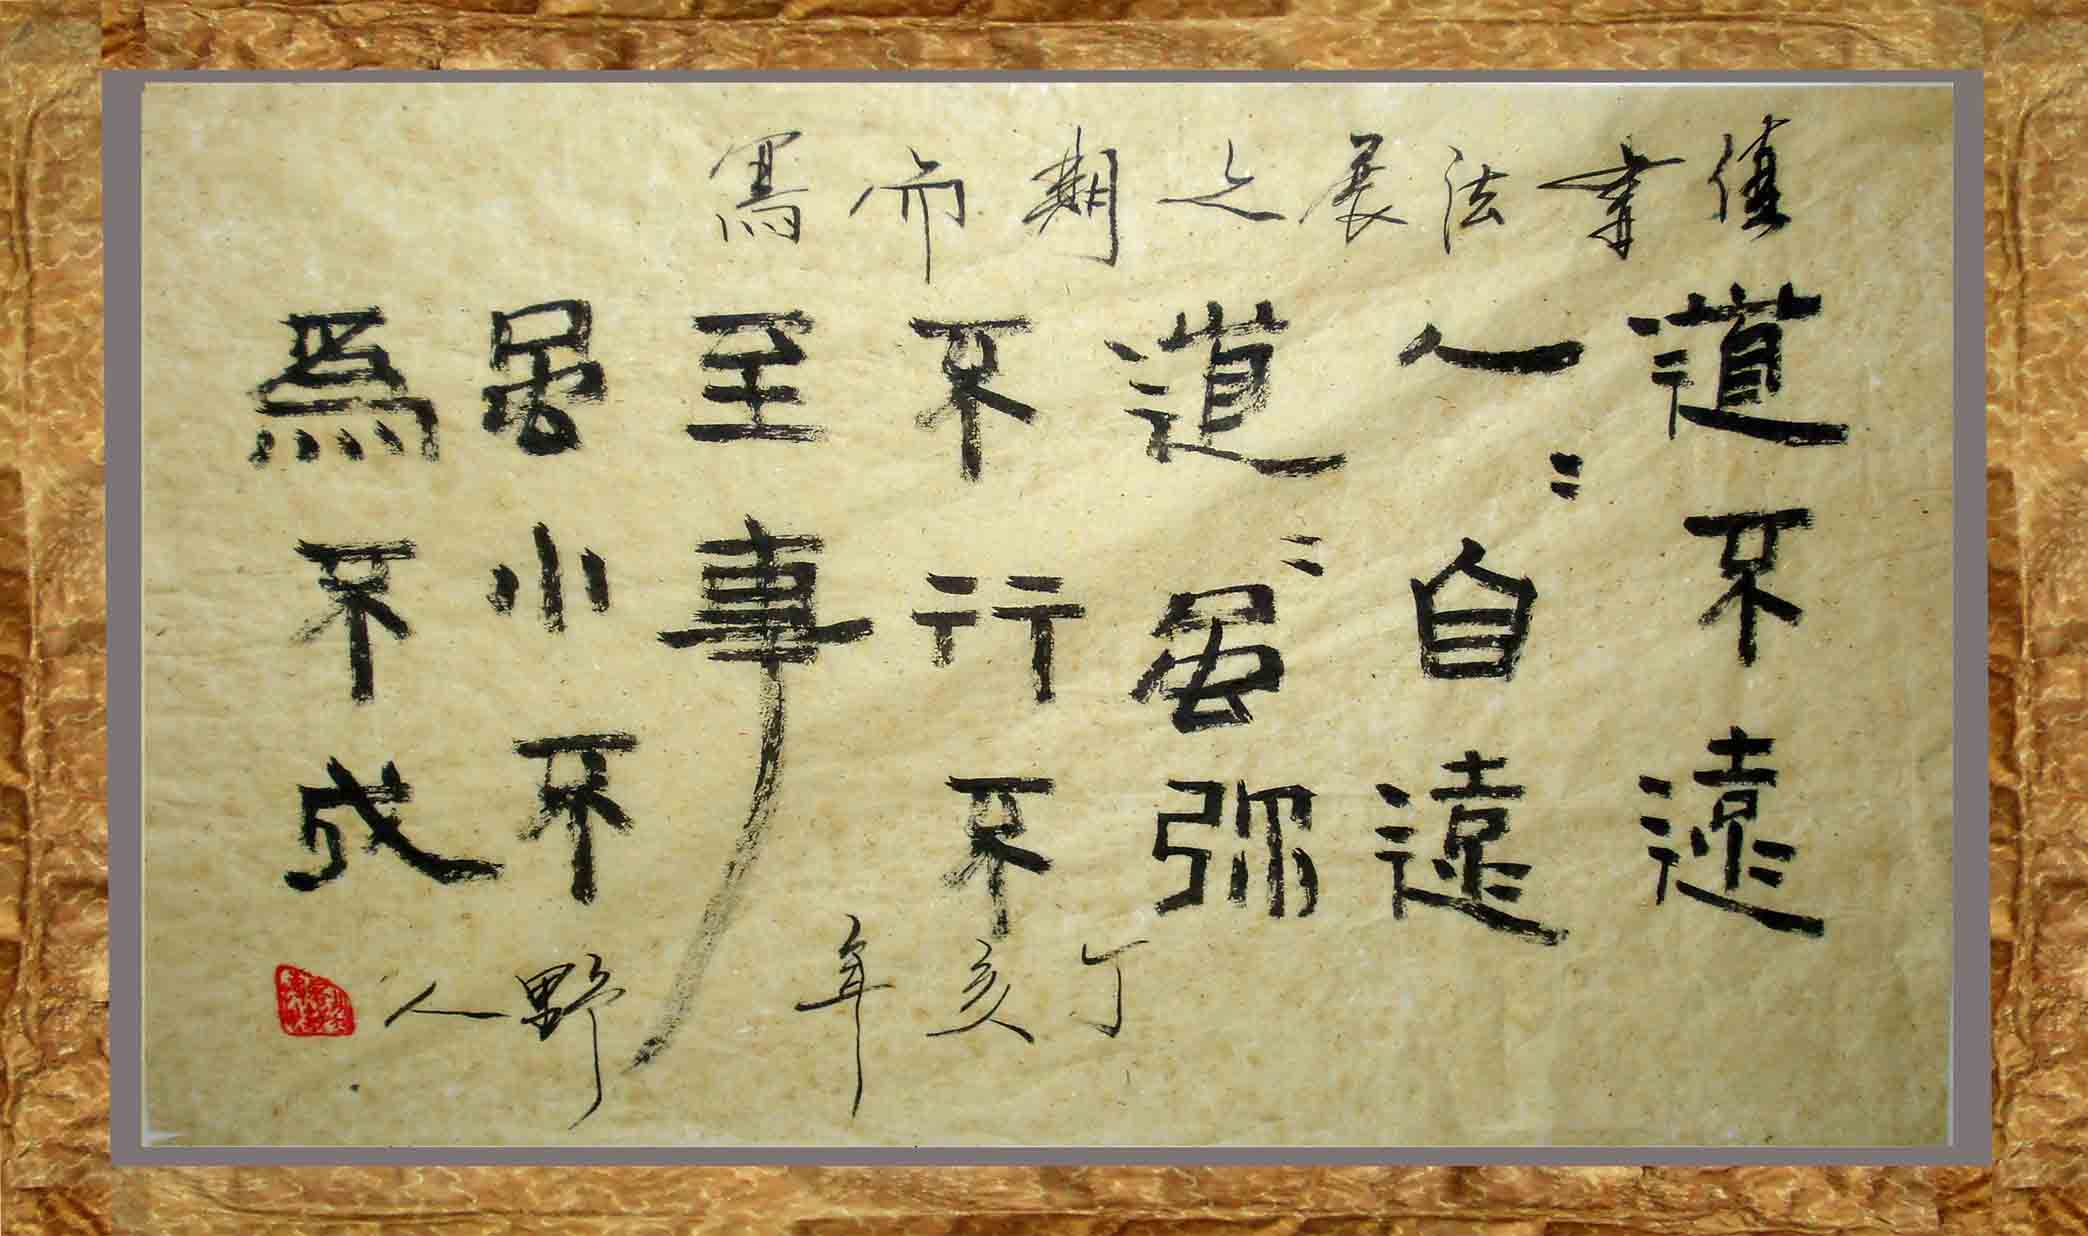 值書法展之期而寫
道不遠
人〻自遠
道〻虽弥
不行不
至事
虽小不
為不成
丁亥年
野人